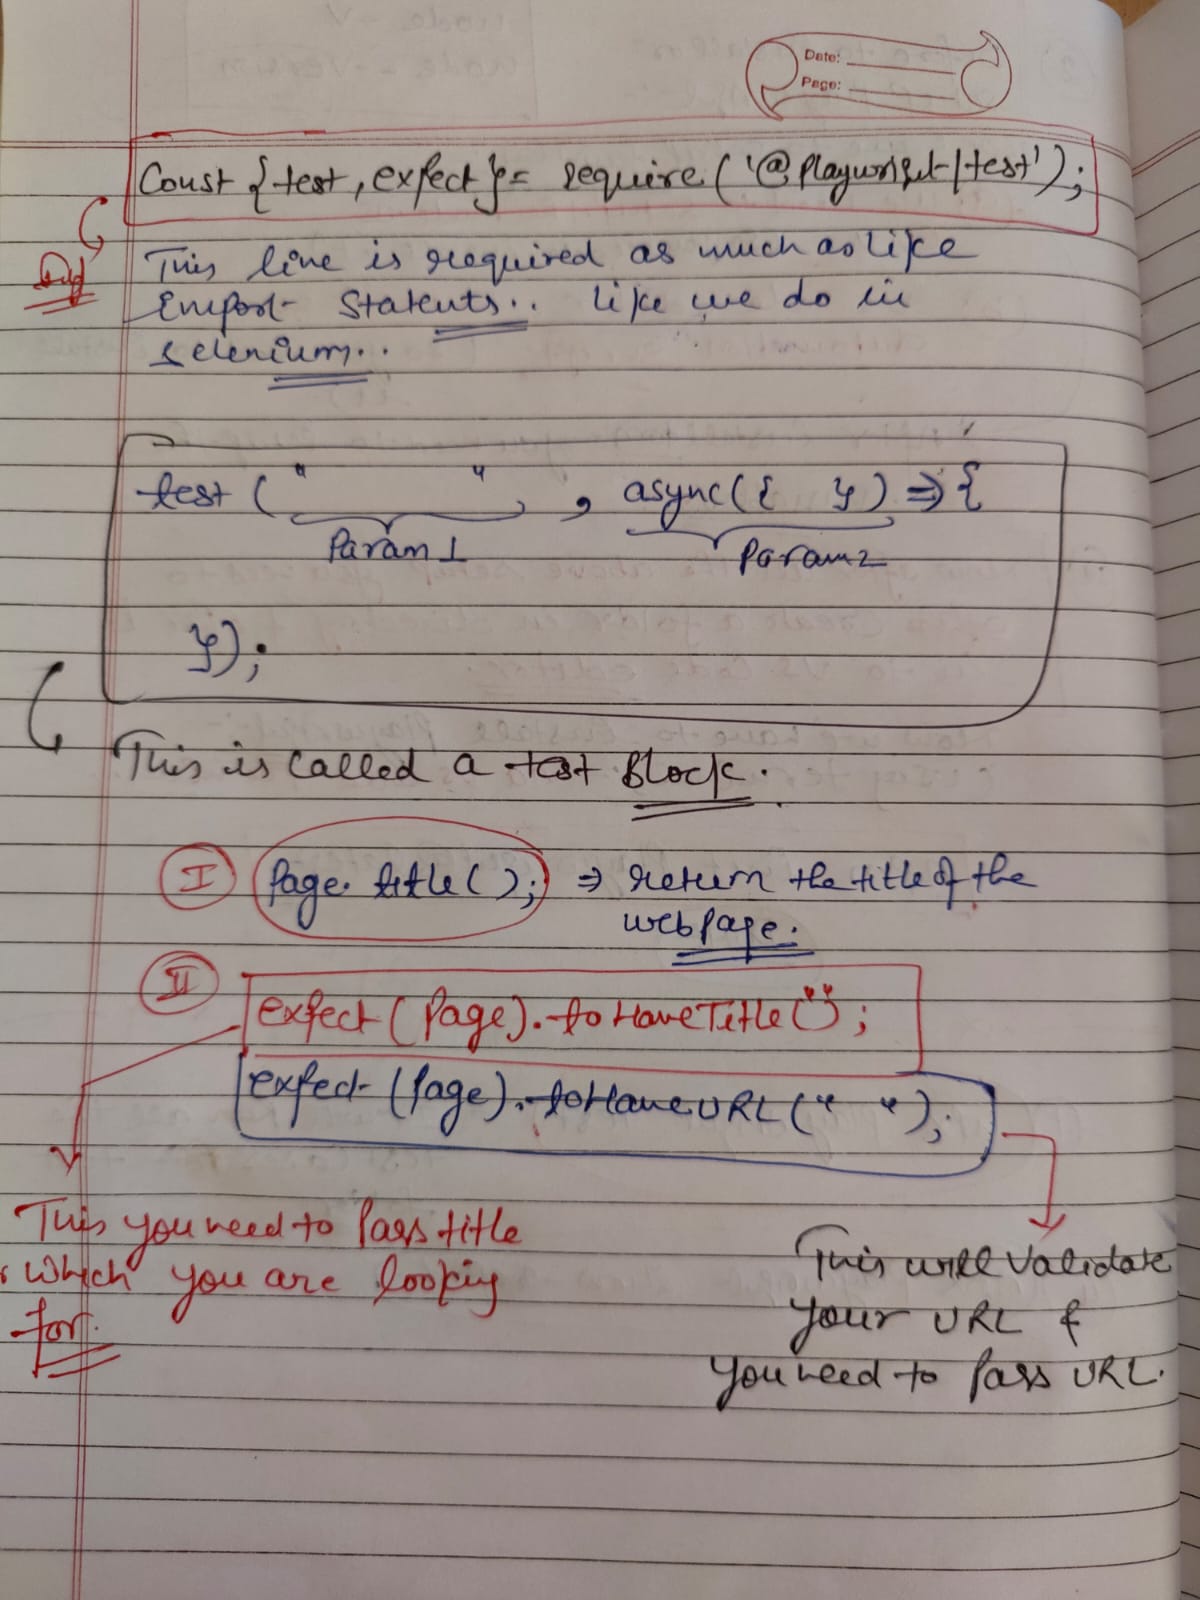 Date:
Page:
Const {test, expect} = require('@playwright/test');
This line is required as much as like
Import Statents.. like we do in
selenium..
test (" ", async({ }) => {
Param 1
Param 2
});
This is called a test Block.
I page.title(); ⇒ return the title of the
webpage.
II expect(Page).toHaveTitle("");
expect(Page).toHaveURL(" ");
This you need to pass title
which you are looking
for.
This will validate
your URL &
you need to pass URL.